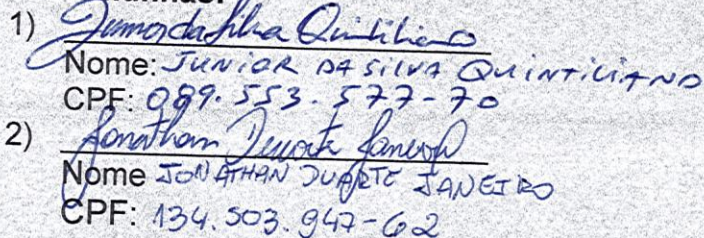 1) Junior da Silva Quintiliano
Nome: JUNIOR DA SILVA QUINTILIANO
CPF: 089.553.577-70
2) Jonathan Duarte Janeiro
Nome JONATHAN DUARTE JANEIRO
CPF: 134.503.947-62